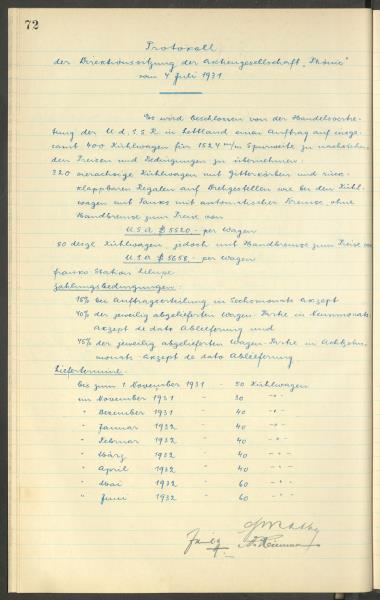 72
Protokoll
der Direktionssitzung der Aktiengesellschaft "Phönix"
vom 4 Juli 1931
Es wird beschlossen von der Handelsvertre-
tung der U.d.S.S.R. in Lettland einen Auftrag auf insge-
samt 400 Kühlwagen für 1524 m/m Spurweite zu nachstehen-
den Preisen und Bedingungen zu übernehmen:
320 vierachsige Kühlwagen mit Gitterkörben und rück-
klappbaren Regalen auf Drehgestellen wie bei den Kühl-
wagen mit Tanks mit automatischer Bremse, ohne
Handbremse zum Preise von
U.S.A. $ 5520.- per Wagen
80 dergl. Kühlwagen, jedoch mit Handbremse zum Preise von
U.S.A. $ 5658.- per Wagen
franko Station Lielupe
Zahlungsbedingungen:
15% bei Auftragserteilung in Sechsmonats Akzept
40% der jeweilig abgelieferten Wagen-Partie in Neunmonats-
Akzept de dato Ablieferung und
45% der jeweilig abgelieferten Wagen-Partie in Achtzehn-
monats-Akzept de dato Ablieferung.
Liefertermine:
bis zum 1. November 1931 - 50 Kühlwagen
im November 1931 - 30 -"-
" Dezember 1931 - 40 -"-
" Januar 1932 - 40 -"-
" Februar 1932 - 40 -"-
" März 1932 - 40 -"-
" April 1932 - 40 -"-
" Mai 1932 - 60 -"-
" Juni 1932 - 60 -"-